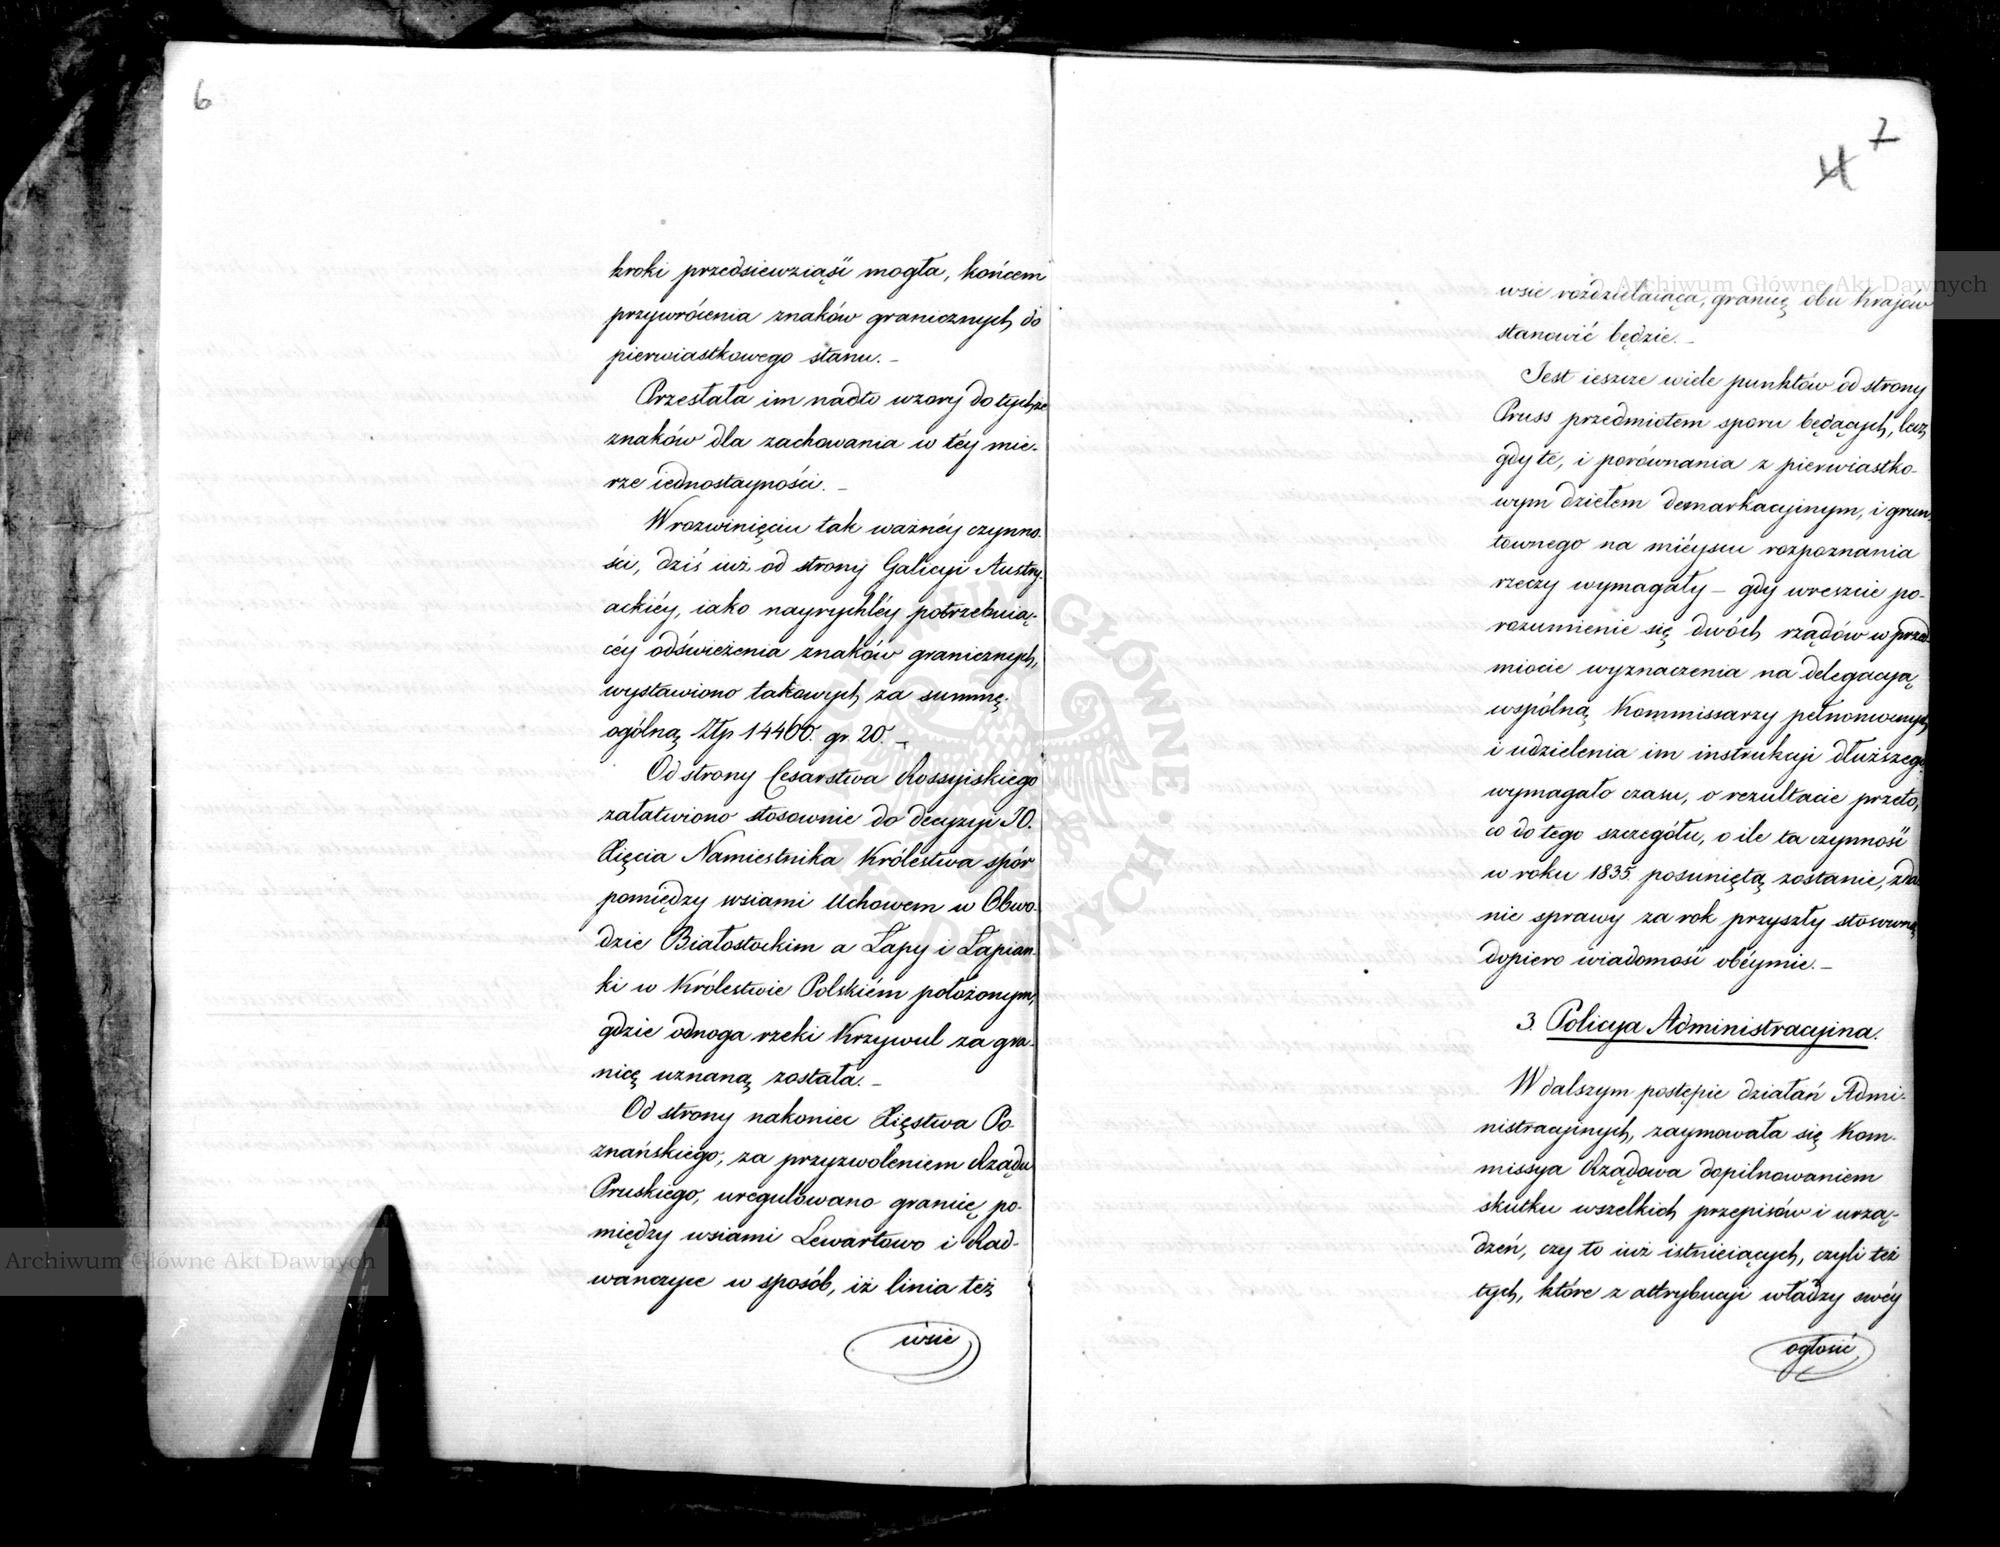 6
kroki przedsiewziąść mogła, końcem
przywrócenia znaków granicznych do
pierwiastkowego stanu. –
Przesłała im nadto wzory do tychże
znaków dla zachowania w téy mie-
rze iednostayności. –
W rozwinięciu tak ważnéy czynno-
ści, dziś iuż od strony Galicyi Austry-
ackiéy, iako nayrychléy potrzebuią-
céy odświeżenia znaków granicznych,
wystawiono takowych za summę
ogólną Złp 14400. gr. 20. –
Od strony Cesarstwa Rossyiskiego
załatwiono stosownie do decyzyi JO.
Xięcia Namiestnika Królestwa spór
pomiędzy wsiami Uchowem w Obwo-
dzie Białostockim a Łapy i Łapian-
ki w Królestwie Polskiém położonym,
gdzie odnoga rzeki Krzywul za gra-
nicę uznaną została. –
Od strony nakoniec Xięstwa Po-
znańskiego, za przyzwoleniem Rządu
Pruskiego, uregulowano granicę po-
między wsiami Lewartowo i Rad-
wanczyce w sposób, iż linia też
wsie
7
4
wsie rozdzielaiąca, granicę obu Krajów
stanowić będzie. –
Jest ieszcze wiele punktów od strony
Pruss przedmiotem sporu będących, lecz
gdy te, i porównania z pierwiastko-
wym dziełem demarkacyjnym, i grun-
townego na mieyscu rozpoznania
rzeczy wymagały – gdy wreszcie po-
rozumienie się dwóch rządów w przed
miocie wyznaczenia na delegacyą
wspólną Kommissarzy pełnomocnych
i udzielenia im instrukcji dłuższego
wymagało czasu, o rezultacie przeto,
co do tego szczegółu, o ile ta czynność
w roku 1835 posuniętą zostanie, zda-
nie sprawy za rok przyszły stosowną
dopiero wiadomość obéymie. –
3. Policya Administracyjna.
W dalszym postępie działań Admi-
nistracyjnych, zaymowała się Kom-
missya Rządowa dopilnowaniem
skutku wszelkich przepisów i urzą-
dzeń, czy to iuż istnieiących, czyli też
tych, które z attrybucyi władzy swéy
ogłosić
© Archiwum Główne Akt Dawnych
Archiwum Główne Akt Dawnych
ARCHIWUM GŁÓWNE AKT DAWNYCH